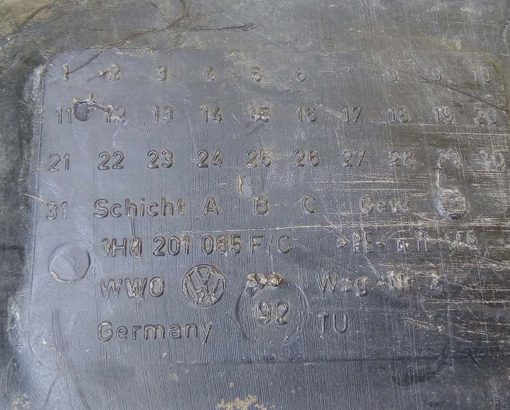 1 2 3 4 5 6 8 9 10
11 12 13 14 15 16 17 18 19 20
21 22 23 24 25 26 27 28 29 30
31 Schicht A B C Gew.
1H0 201 085 F/C
WWO VW Wzg-Nr.
92
Germany TU